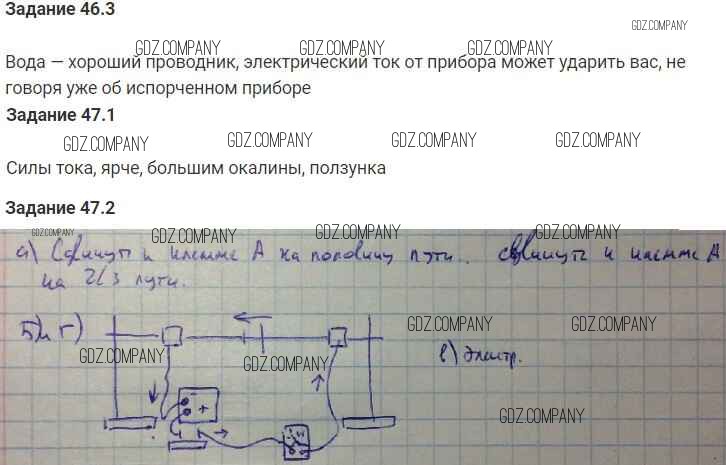 Задание 46.3
GDZ.COMPANY
GDZ.COMPANY GDZ.COMPANY GDZ.COMPANY
Вода — хороший проводник, электрический ток от прибора может ударить вас, не
говоря уже об испорченном приборе
Задание 47.1
GDZ.COMPANY GDZ.COMPANY GDZ.COMPANY GDZ.COMPANY
Силы тока, ярче, большим окалины, ползунка
Задание 47.2
GDZ.COMPANY GDZ.COMPANY GDZ.COMPANY GDZ.COMPANY
а) Сдвинуть к клемме А на половину пути. Сдвинуть к клемме А
на 2/3 пути.
Б) и Г)
GDZ.COMPANY GDZ.COMPANY
GDZ.COMPANY GDZ.COMPANY
в) Электр.
- +
GDZ.COMPANY